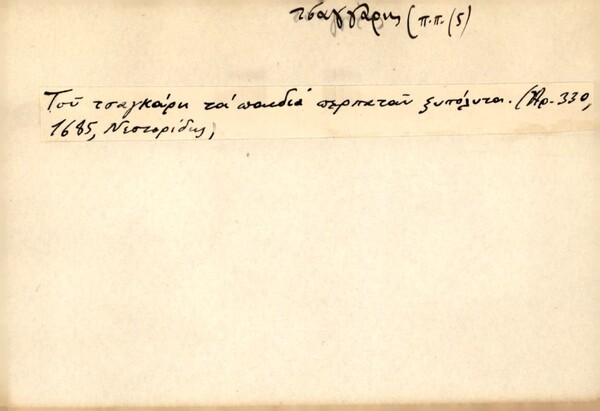 τσαγγάρης (π.π. (5)
Τοῦ τσαγκάρη τά παιδιά περπατᾶν ξυπόλυτα. (Ἀρ. 330,
1685, Νεστορίδης,